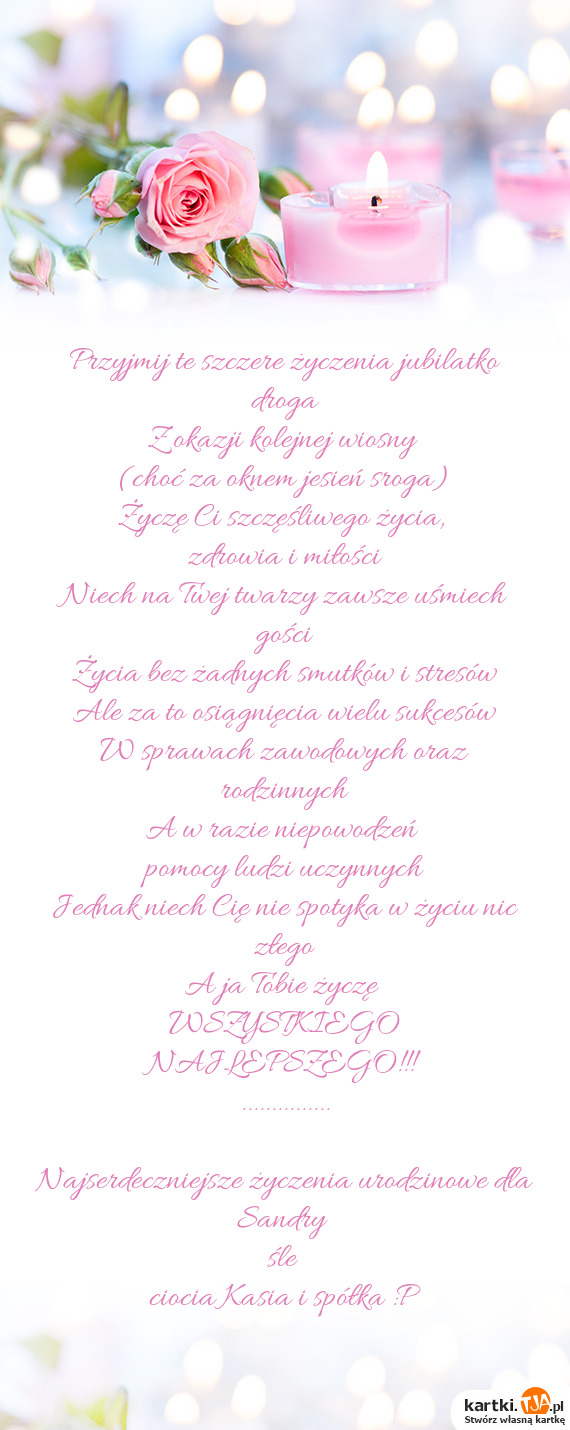 Przyjmij te szczere życzenia jubilatko
droga
Z okazji kolejnej wiosny
(choć za oknem jesień sroga)
Życzę Ci szczęśliwego życia,
zdrowia i miłości
Niech na Twej twarzy zawsze uśmiech
gości
Życia bez żadnych smutków i stresów
Ale za to osiągnięcia wielu sukcesów
W sprawach zawodowych oraz
rodzinnych
A w razie niepowodzeń
pomocy ludzi uczynnych
Jednak niech Cię nie spotyka w życiu nic
złego
A ja Tobie życzę
WSZYSTKIEGO
NAJLEPSZEGO!!!
...............
Najserdeczniejsze życzenia urodzinowe dla
Sandry
śle
ciocia Kasia i spółka :P
kartki.TJA.pl
Stwórz własną kartkę